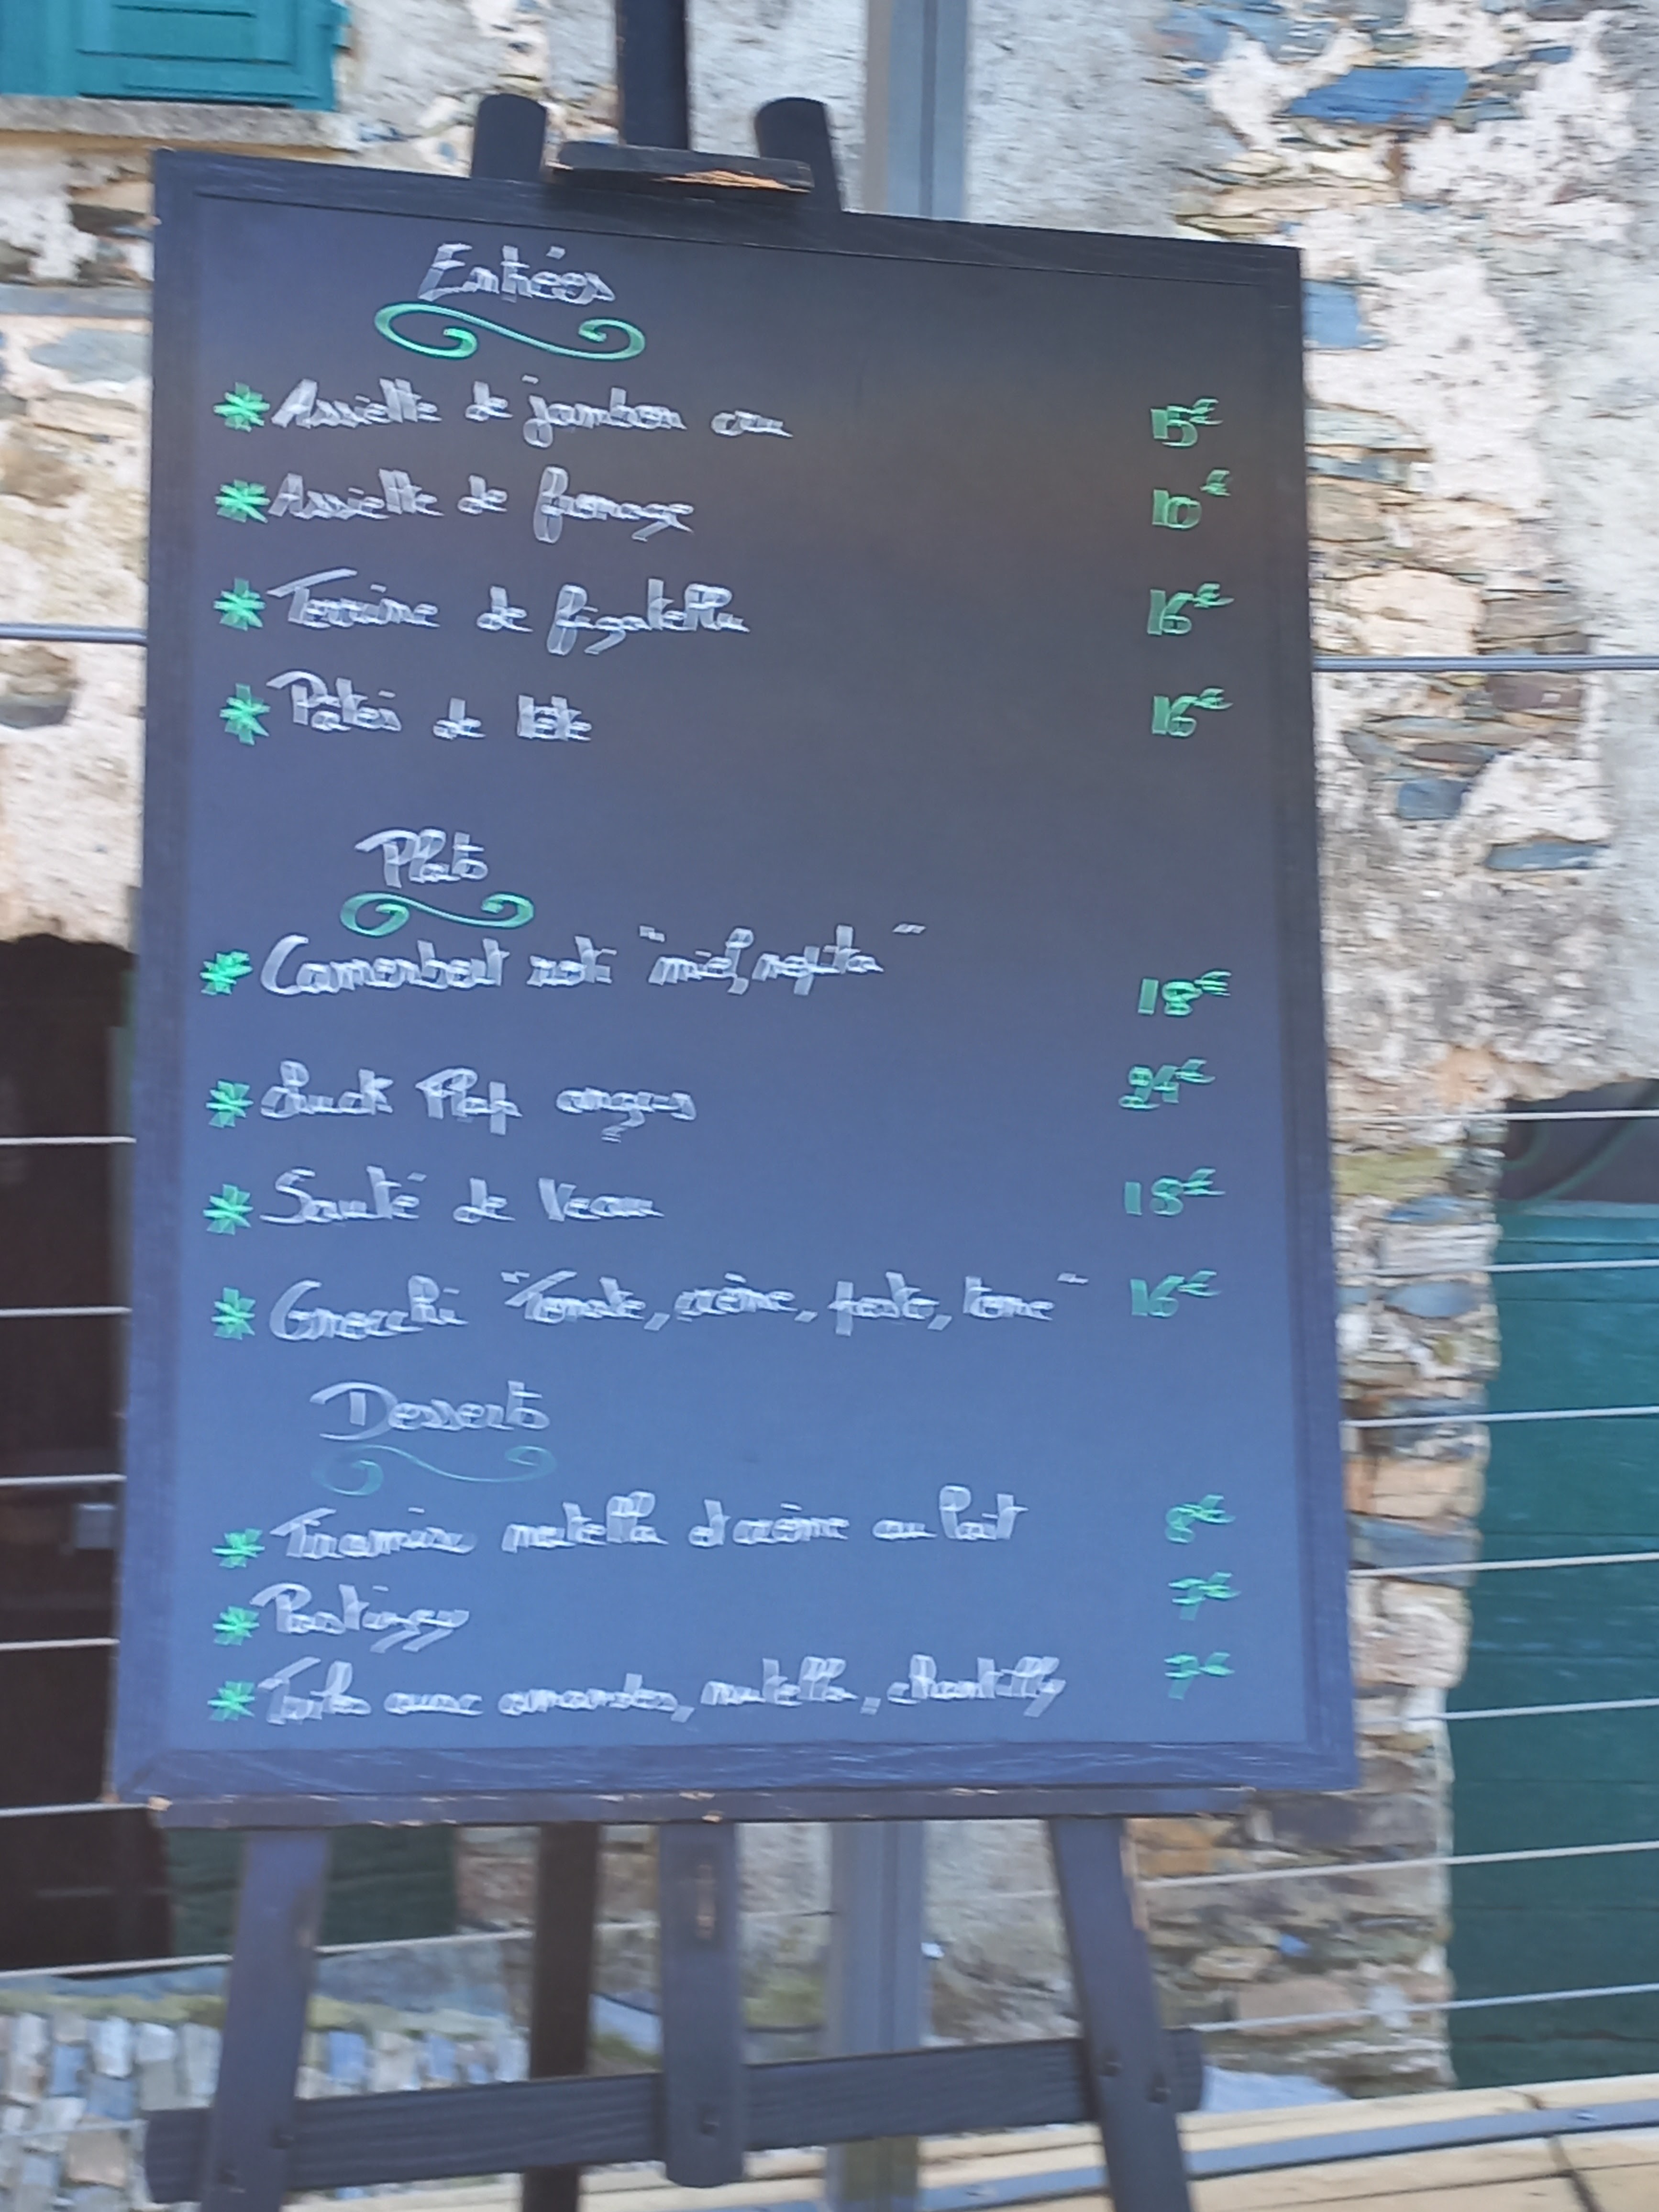 Entrées
Assiette de jambon cru 15€
Assiette de fromage 10€
Terrine de figatellu 16€
Patés de tête 16€
Plats
Camembert roti "miel, nepita" 18€
Duck Flap angus 24€
Sauté de Veau 18€
Gnocchi "Tomate, crème, pesto, tome" 16€
Desserts
Tiramisu nutella et crème au lait 8€
Pastizzu 7€
Tarte aux amandes, nutella, chantilly 7€